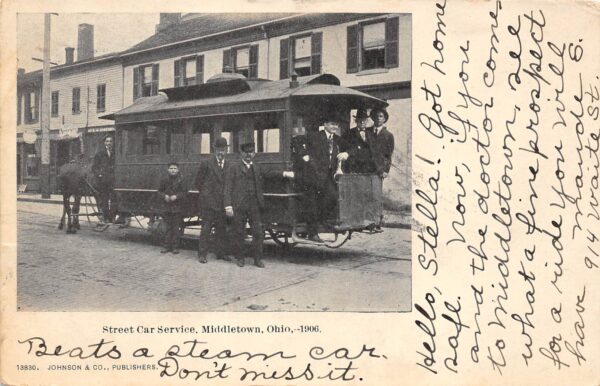 Street Car Service, Middletown, Ohio,--1906.
Beats a steam car.
13830. JOHNSON & CO., PUBLISHERS.
Don't miss it.
Hello, Stella! Got home
safe. Now, if you
and the doctor come
to Middletown, see
what a fine prospect
for a ride you will
have Maude S.
914 Waite St.